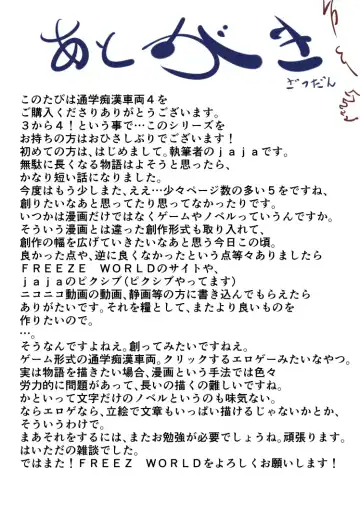 あとがき
ざつだん
このたびは通学痴漢車両４を
ご購入くださりありがとうございます。
３から４！という事で…このシリーズを
お持ちの方はおひさしぶりでございます！
初めての方は、はじめまして。執筆者のｊａｊａです。
無駄に長くなる物語はよそうと思ったら、
かなり短い話になりました。
今度はもう少しまた、ええ…少々ページ数の多い５をですね、
創りたいなあと思ってたり思ってなかったりです。
いつかは漫画だけではなくゲームやノベルっていうんですか。
そういう漫画とは違った創作形式も取り入れて、
創作の幅を広げていきたいなあと思う今日この頃。
良かった点や、逆に良くなかったという点等々ありましたら
ＦＲＥＥＺＥ　ＷＯＲＬＤのサイトや、
ｊａｊａのピクシブ（ピクシブやってます）
ニコニコ動画の動画、静画等の方に書き込んでもらえたら
ありがたいです。それを糧として、またより良いものを
作りたいので。
…。
そうなんですよねえ。創ってみたいですねえ。
ゲーム形式の通学痴漢車両。クリックするエロゲーみたいなやつ。
実は物語を描きたい場合、漫画という手法では色々
労力的に問題があって、長いの描くの難しいですね。
かといって文字だけのノベルというのも味気ない。
ならエロゲなら、立絵で文章もいっぱい描けるじゃないかとか、
そういうわけで。
まあそれをするには、またお勉強が必要でしょうね。頑張ります。
はいただの雑談でした。
ではまた！ＦＲＥＥＺ　ＷＯＲＬＤをよろしくお願いします！